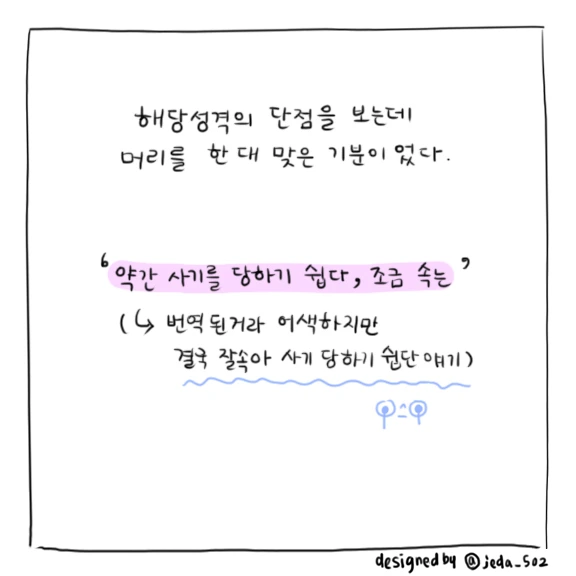 해당성격의 단점을 보는데
머리를 한 대 맞은 기분이었다.
'약간 사기를 당하기 쉽다, 조금 속는'
(↳ 번역된거라 어색하지만
결국 잘속아 사기 당하기 쉽단 얘기)
designed by @jeda_502